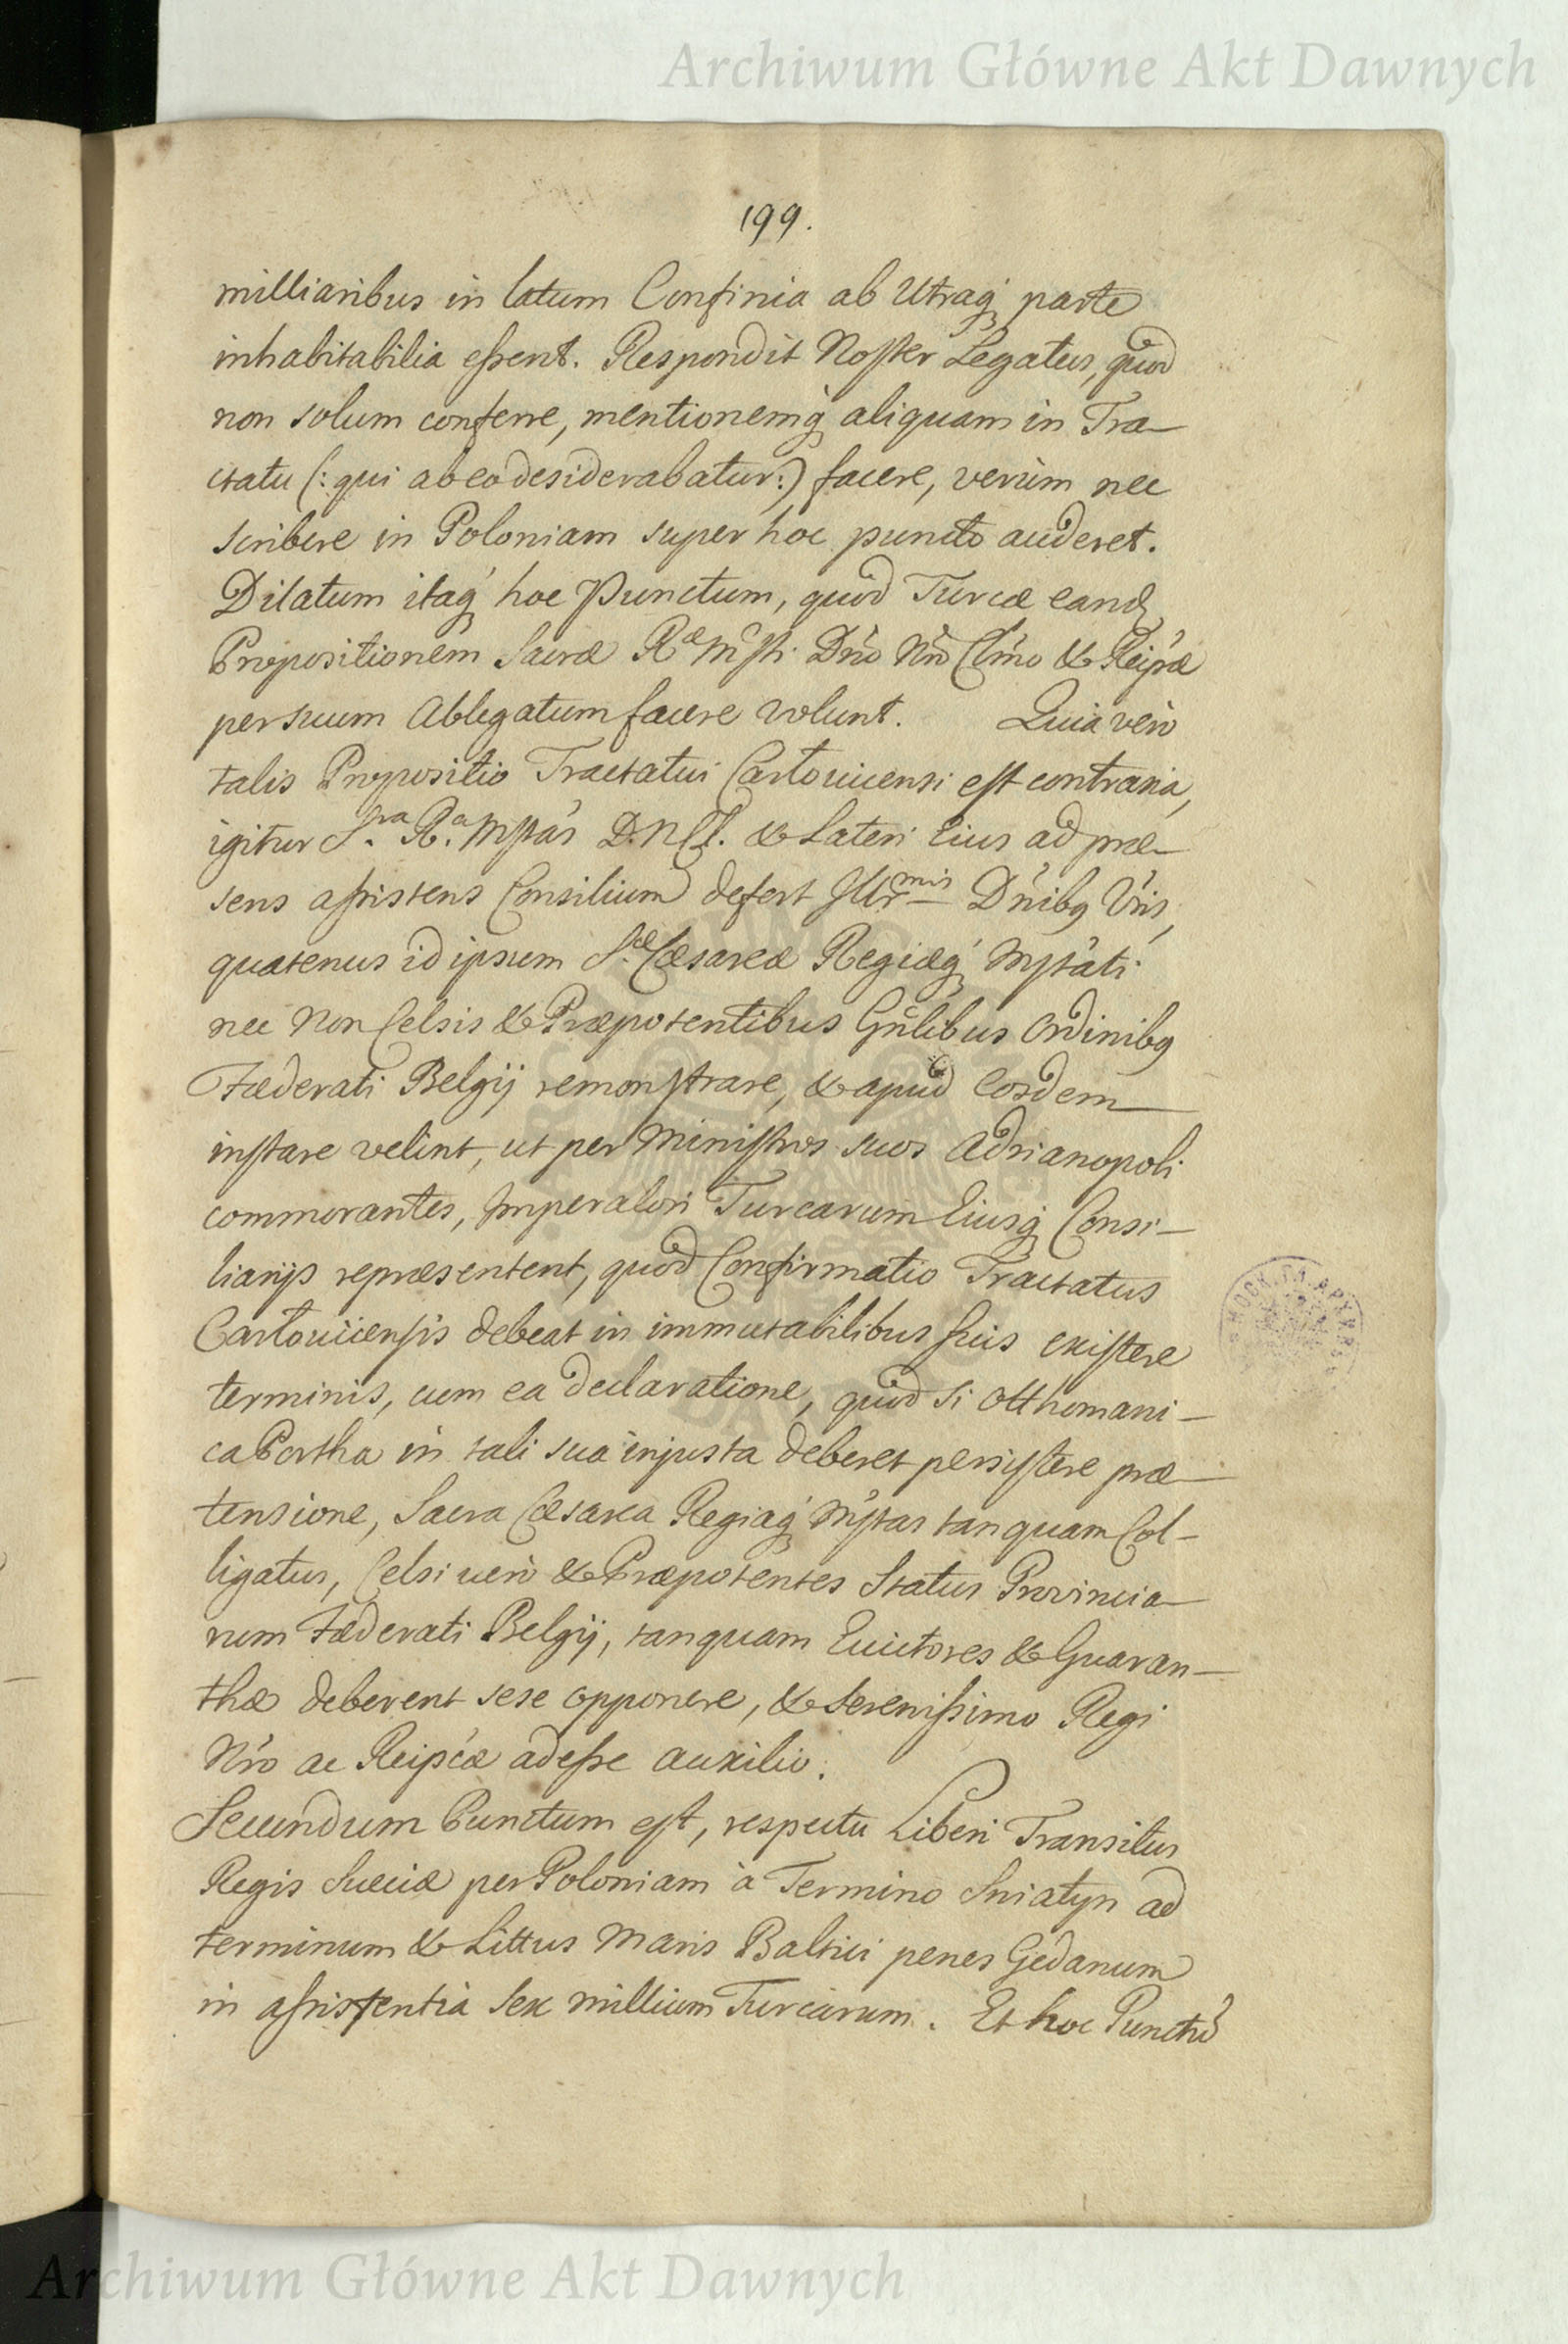 Archiwum Główne Akt Dawnych
199.
milliaribus in latum Confinia ab Utraq, parte
inhabitabilia essent. Respondit Noster Legatus, quod
non solum conferre, mentionemq, aliquam in Tra-
ctatu (: qui ab eo desiderabatur :) facere, verùm nec
scribere in Poloniam super hoc puncto auderet.
Dilatum itaq, hoc Punctum, quod Turcæ eand,
Propositionem Sacræ Ræ Msti Dn̄o Nr̄o Clmo & Reipæ
per suum Ablegatum facere volunt. Quia verò
talis Propositio Tractatui Carlovicensi est contraria,
igitur S.ra R.a Mtas D. N. Cl. & Lateri Eius ad præ-
sens assistens Consilium defert Illr̄mis Dn̄ibq Vr̄is,
quatenus id ipsum S.æ Cæsareæ Regiæq, Mstati
nec non Celsis & Præpotentibus Gn̄libus Ordinibq
Fæderati Belgij remonstrare, & apud Eosdem
instare velint, ut per Ministros suos Adrianopoli
commorantes, Imperatori Turcarum Eiusq, Consi-
liarijs repræsentent, quod Confirmatio Tractatus
Carlovicensis debeat in immutabilibus suis existere
terminis, cum ea declaratione, quod si Otthomani-
ca Portha in tali sua injusta deberet persistere præ-
tensione, Sacra Cæsarea Regiaq, Mstas tanquam Col-
ligatus, Celsi verò & Præpotentes Status Provincia-
rum Fæderati Belgij, tanquam Evictores & Guaran-
thæ deberent sese opponere, & Serenissimo Regi
Nr̄o ac Reipcæ adesse auxilio.
Secundum Punctum est, respectu Liberi Transitus
Regis Sueciæ per Poloniam à Termino Sniatyn ad
terminum & Littus Maris Baltici penes Gedanum
in assistentia sex millium Turcarum. Et hoc Punctū
Archiwum Główne Akt Dawnych